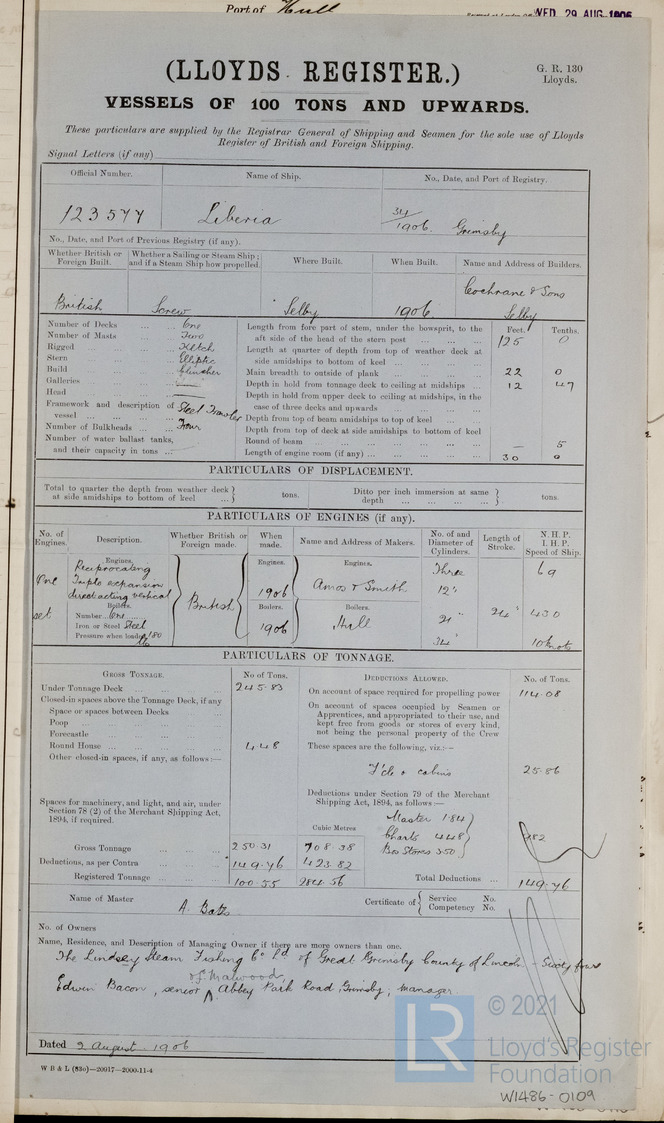 Port of Hull
WED. 29 AUG. 1906
(LLOYDS REGISTER.)
G. R. 130
Lloyds.
VESSELS OF 100 TONS AND UPWARDS.
These particulars are supplied by the Registrar General of Shipping and Seamen for the sole use of Lloyds
Register of British and Foreign Shipping.
Signal Letters (if any)
Official Number. Name of Ship. No., Date, and Port of Registry.
123577 Liberia 34/1906. Grimsby
No., Date, and Port of Previous Registry (if any).
Whether British or Foreign Built. Whether a Sailing or Steam Ship; and if a Steam Ship how propelled. Where Built. When Built. Name and Address of Builders.
British Screw Selby 1906. Cochrane & Sons Selby
Number of Decks ... ... One
Number of Masts ... ... Two
Rigged ... ... ... Ketch
Stern ... ... ... Elliptic
Build ... ... ... Clincher
Galleries ... ... ...
Head ... ... ...
Framework and description of vessel ... ... ... Steel Trawler
Number of Bulkheads ... ... Four
Number of water ballast tanks,
and their capacity in tons ...
Feet. Tenths.
Length from fore part of stem, under the bowsprit, to the
aft side of the head of the stern post ... ... ... 125 0
Length at quarter of depth from top of weather deck at
side amidships to bottom of keel ... ... ...
Main breadth to outside of plank ... ... ... 22 0
Depth in hold from tonnage deck to ceiling at midships ... 12 47
Depth in hold from upper deck to ceiling at midships, in the
case of three decks and upwards ... ... ...
Depth from top of beam amidships to top of keel ... ...
Depth from top of deck at side amidships to bottom of keel
Round of beam ... ... ... — 5
Length of engine room (if any) ... ... ... 30 0
PARTICULARS OF DISPLACEMENT.
Total to quarter the depth from weather deck at side amidships to bottom of keel ... } tons. Ditto per inch immersion at same depth ... ... ... } tons.
PARTICULARS OF ENGINES (if any).
No. of Engines. Description. Whether British or Foreign made. When made. Name and Address of Makers. No. of and Diameter of Cylinders. Length of Stroke. N. H. P. I. H. P. Speed of Ship.
Engines. Engines. Engines.
One set Reciprocating Triple expansion direct acting vertical British 1906 Amos & Smith Three 12" 21" 34" 24" 69 430 10 knots
Boilers. Boilers. Boilers.
Number One 1906 Hull
Iron or Steel Steel
Pressure when loaded 180 lbs
PARTICULARS OF TONNAGE.
GROSS TONNAGE. No of Tons. DEDUCTIONS ALLOWED. No. of Tons.
Under Tonnage Deck ... ... ... 245.83
Closed-in spaces above the Tonnage Deck, if any
Space or spaces between Decks ...
Poop ... ... ...
Forecastle ... ... ...
Round House ... ... ... 4.48
Other closed-in spaces, if any, as follows:—
Spaces for machinery, and light, and air, under
Section 78 (2) of the Merchant Shipping Act,
1894, if required.
On account of space required for propelling power 114.08
On account of spaces occupied by Seamen or
Apprentices, and appropriated to their use, and
kept free from goods or stores of every kind,
not being the personal property of the Crew
These spaces are the following, viz.:—
F'cle & cabins 25.86
Deductions under Section 79 of the Merchant
Shipping Act, 1894, as follows:—
Master 1.84
Charts 4.48
Bos Stores 3.50
9.82
Cubic Metres
Gross Tonnage ... ... ... 250.31 708.38
Deductions, as per Contra ... ... 149.76 423.82
Registered Tonnage ... ... 100.55 284.56
Total Deductions ... 149.76
Name of Master A. Bates Certificate of { Service No. Competency No.
No. of Owners
Name, Residence, and Description of Managing Owner if there are more owners than one.
The Lindsey Steam Fishing Co Ld of Great Grimsby County of Lincoln - Sixty four
of Malwood,
Edwin Bacon, senior ^ Abbey Park Road, Grimsby, manager
Dated 2 August 1906
W B & L (83o)—20917—2000-11-4
LR
© 2021
Lloyd's Register
Foundation
W1486-0109